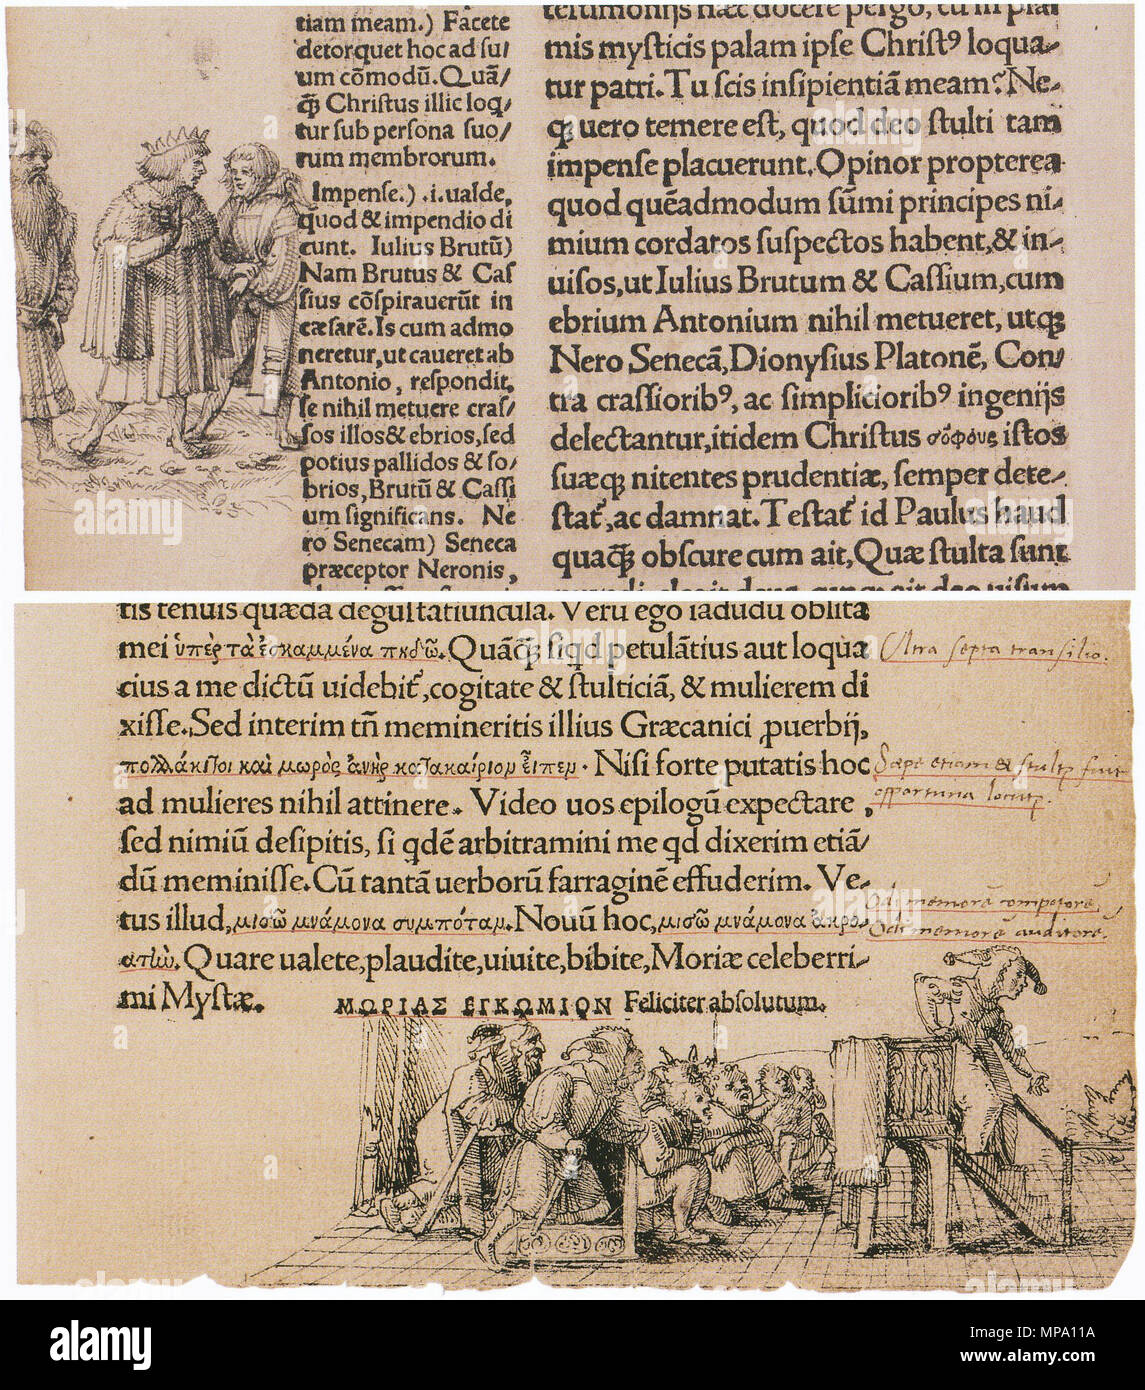 tiam meam.) Facete
detorquet hoc ad su/
um cōmodū. Quā/
q̃ Christus illic loq/
tur sub persona suo/
rum membrorum.
Impense.) .i. ualde,
quod & impendio di
cunt. Iulius Brutū)
Nam Brutus & Cas
sius cōspirauerūt in
cæsarē. Is cum admo
neretur, ut caueret ab
Antonio, respondit,
se nihil metuere cras/
sos illos & ebrios, sed
potius pallidos & so/
brios, Brutū & Cassi
um significans. Ne
ro Senecam) Seneca
præceptor Neronis,
testimonijs hæc docere pergo, cū in psal
mis mysticis palam ipse Christꝰ loqua-
tur patri. Tu scis insipientiā meam? Ne-
qꝫ uero temere est, quod deo stulti tam
impense placuerunt. Opinor propterea
quod quēadmodum sūmi principes ni-
mium cordatos suspectos habent, & in-
uisos, ut Iulius Brutum & Cassium, cum
ebrium Antonium nihil metueret, utqꝫ
Nero Senecā, Dionysius Platonē, Con/
tra crassioribꝰ, ac simplicioribꝰ ingenijs
delectantur, itidem Christus σοφοὺς istos
suæqꝫ nitentes prudentiæ, semper dete-
stat᷑, ac damnat. Testat᷑ id Paulus haud
quaq̃ obscure cum ait, Quæ stulta sunt
mundi, elegit deus, cumqꝫ ait deo uisum
tis tenuis quæda degustatiuncula. Verū ego iādudū oblita
mei ὑπὲρ τὰ ἐσκαμμένα πηδῶ. Quāq̃ siqd petulātius aut loqua
cius a me dictū uidebit᷑, cogitate & stulticiā, & mulierem di
xisse. Sed interim tñ memineritis illius Græcanici ꝓuerbij,
πολλάκι τοι καὶ μωρὸς ἀνὴρ κατακαίριον εἶπεν. Nisi forte putatis hoc
ad mulieres nihil attinere. Video uos epilogū expectare,
sed nimiū desipitis, si qdē arbitramini me qd dixerim etiā/
dū meminisse. Cū tantā uerborū farraginē effuderim. Ve-
tus illud, μισῶ μνάμονα συμπόταν. Nouū hoc, μισῶ μνάμονα ἀκρο-
ατὼ. Quare ualete, plaudite, uiuite, bibite, Moriæ celeberri-
mi Mystæ.
ΜΩΡΙΑΣ ΕΓΚΩΜΙΟΝ Feliciter absolutum.
Ultra septa transilio.
Sæpe etiam est stultꝰ fuit
opportuna locutꝰ.
Odi memorē compotorē,
Odi memorē auditorē.
alamy
Image ID: MPA11A
www.alamy.com